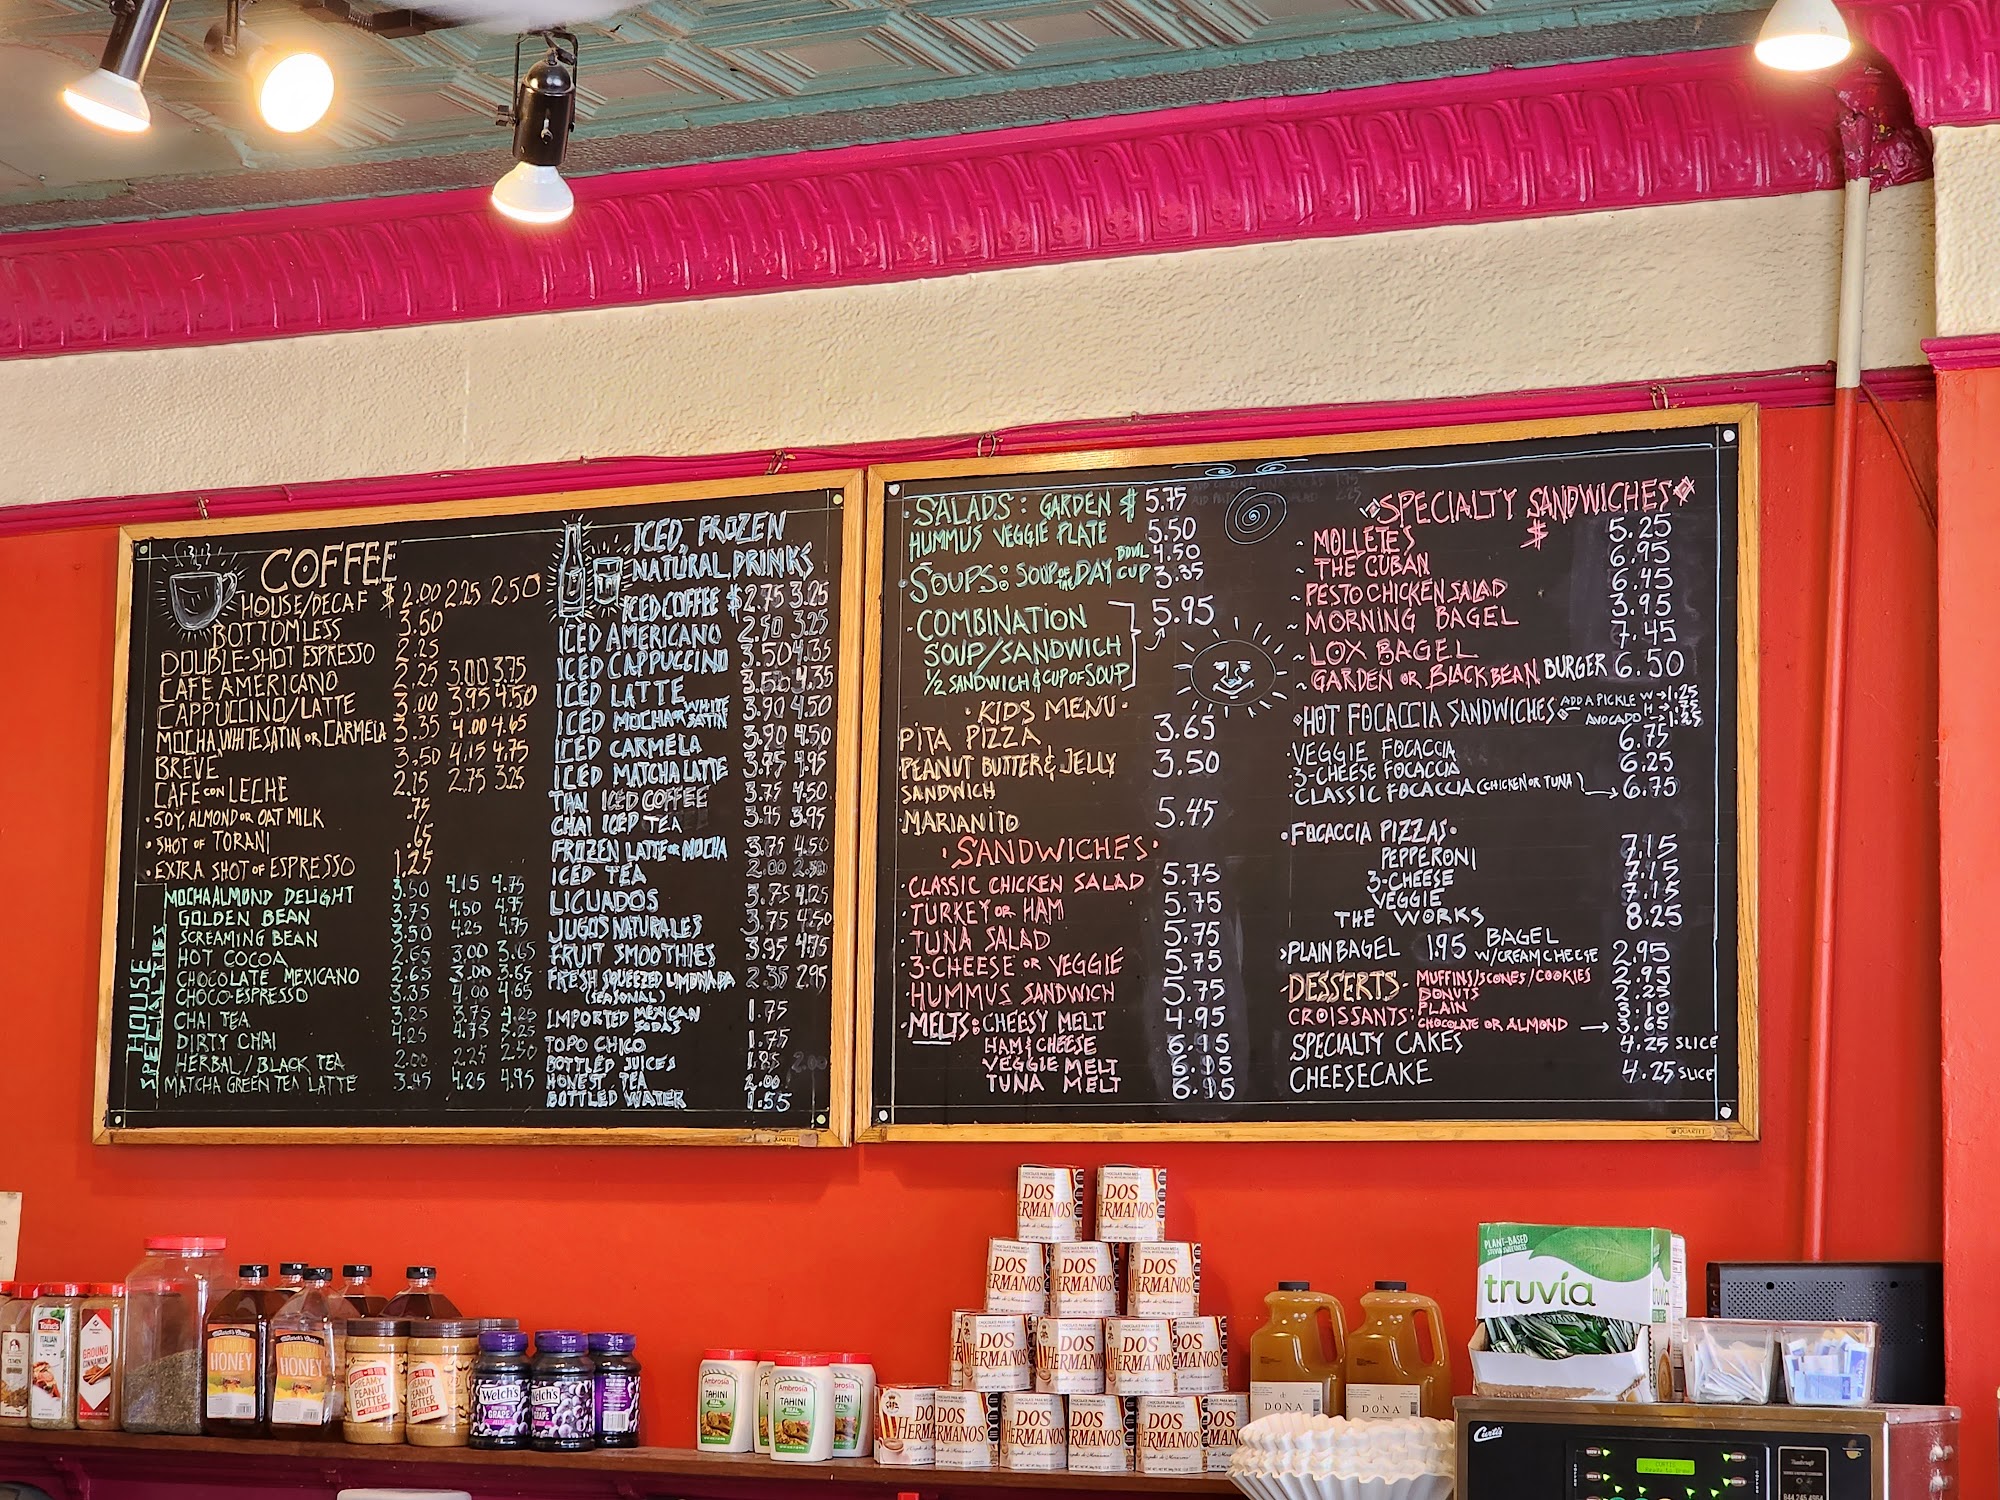 COFFEE
HOUSE/DECAF $ 2.00 2.25 2.50
BOTTOMLESS 3.50
DOUBLE-SHOT ESPRESSO 2.25
CAFE AMERICANO 2.25 3.00 3.75
CAPPUCCINO/LATTE 3.00 3.95 4.50
MOCHA, WHITE SATIN OR CARMELA 3.35 4.00 4.65
BREVE 3.50 4.15 4.75
CAFE CON LECHE 2.15 2.75 3.25
• SOY, ALMOND OR OAT MILK .75
• SHOT OF TORANI .65
• EXTRA SHOT OF ESPRESSO 1.25
HOUSE SPECIALTIES
MOCHA ALMOND DELIGHT 3.50 4.15 4.75
GOLDEN BEAN 3.75 4.50 4.95
SCREAMING BEAN 3.50 4.25 4.75
HOT COCOA 2.65 3.00 3.65
CHOCOLATE MEXICANO 2.65 3.00 3.65
CHOCO-ESPRESSO 3.35 4.00 4.65
CHAI TEA 3.25 3.75 4.25
DIRTY CHAI 4.25 4.75 5.25
HERBAL/BLACK TEA 2.00 2.25 2.50
MATCHA GREEN TEA LATTE 3.45 4.25 4.95
ICED, FROZEN
NATURAL DRINKS
ICED COFFEE $ 2.75 3.25
ICED AMERICANO 2.50 3.25
ICED CAPPUCCINO 3.50 4.35
ICED LATTE 3.50 4.35
ICED MOCHA OR WHITE SATIN 3.90 4.50
ICED CARMELA 3.90 4.50
ICED MATCHA LATTE 3.75 4.95
THAI ICED COFFEE 3.75 4.50
CHAI ICED TEA 3.45 3.95
FROZEN LATTE OR MOCHA 3.75 4.50
ICED TEA 2.00 2.50
LICUADOS 3.75 4.25
JUGOS NATURALES 3.75 4.50
FRUIT SMOOTHIES 3.95 4.75
FRESH SQUEEZED LIMONADA 2.35 2.95
(SEASONAL)
IMPORTED MEXICAN SODAS 1.75
TOPO CHICO 1.75
BOTTLED JUICES 1.85 2.00
HONEST TEA 2.00
BOTTLED WATER 1.55
• SALADS: GARDEN $ 5.75
HUMMUS VEGGIE PLATE 5.50
• SOUPS: SOUP OF THE DAY BOWL 4.50
CUP 3.35
• COMBINATION 5.95
SOUP/SANDWICH
1/2 SANDWICH & CUP OF SOUP
• KIDS MENU •
PITA PIZZA 3.65
PEANUT BUTTER & JELLY 3.50
SANDWICH
MARIANITO 5.45
• SANDWICHES •
• CLASSIC CHICKEN SALAD 5.75
• TURKEY OR HAM 5.75
• TUNA SALAD 5.75
• 3-CHEESE OR VEGGIE 5.75
• HUMMUS SANDWICH 5.75
• MELTS: CHEESY MELT 4.95
HAM & CHEESE 6.95
VEGGIE MELT 6.95
TUNA MELT 6.95
SPECIALTY SANDWICHES
~ MOLLETES $ 5.25
~ THE CUBAN 6.95
~ PESTO CHICKEN SALAD 6.45
~ MORNING BAGEL 3.95
~ LOX BAGEL 7.45
~ GARDEN OR BLACK BEAN BURGER 6.50
HOT FOCACCIA SANDWICHES ADD A PICKLE W→1.25
H→.75
AVOCADO →1.25
• VEGGIE FOCACCIA 6.75
• 3-CHEESE FOCACCIA 6.25
• CLASSIC FOCACCIA (CHICKEN OR TUNA) → 6.75
• FOCACCIA PIZZAS •
PEPPERONI 7.15
3-CHEESE 7.15
VEGGIE 7.15
THE WORKS 8.25
PLAIN BAGEL 1.95 BAGEL W/CREAM CHEESE 2.95
DESSERTS - MUFFINS/SCONES/COOKIES 2.95
DONUTS 2.25
CROISSANTS: PLAIN 3.10
CHOCOLATE OR ALMOND → 3.65
SPECIALTY CAKES 4.25 SLICE
CHEESECAKE 4.25 SLICE
QUARTET
DOS
HERMANOS
DOS
HERMANOS
DOS
HERMANOS
DOS
HERMANOS
DOS
HERMANOS
PLANT-BASED
truvia
ITALIAN
GROUND
CINNAMON
HONEY
HONEY
CREAMY
PEANUT
BUTTER
SPREAD
CREAMY
PEANUT
BUTTER
Welch's
GRAPE
Welch's
GRAPE
Ambrosia
TAHINI
Ambrosia
TAHINI
REAL
DOS
HERMANOS
DONA
DONA
Curtis